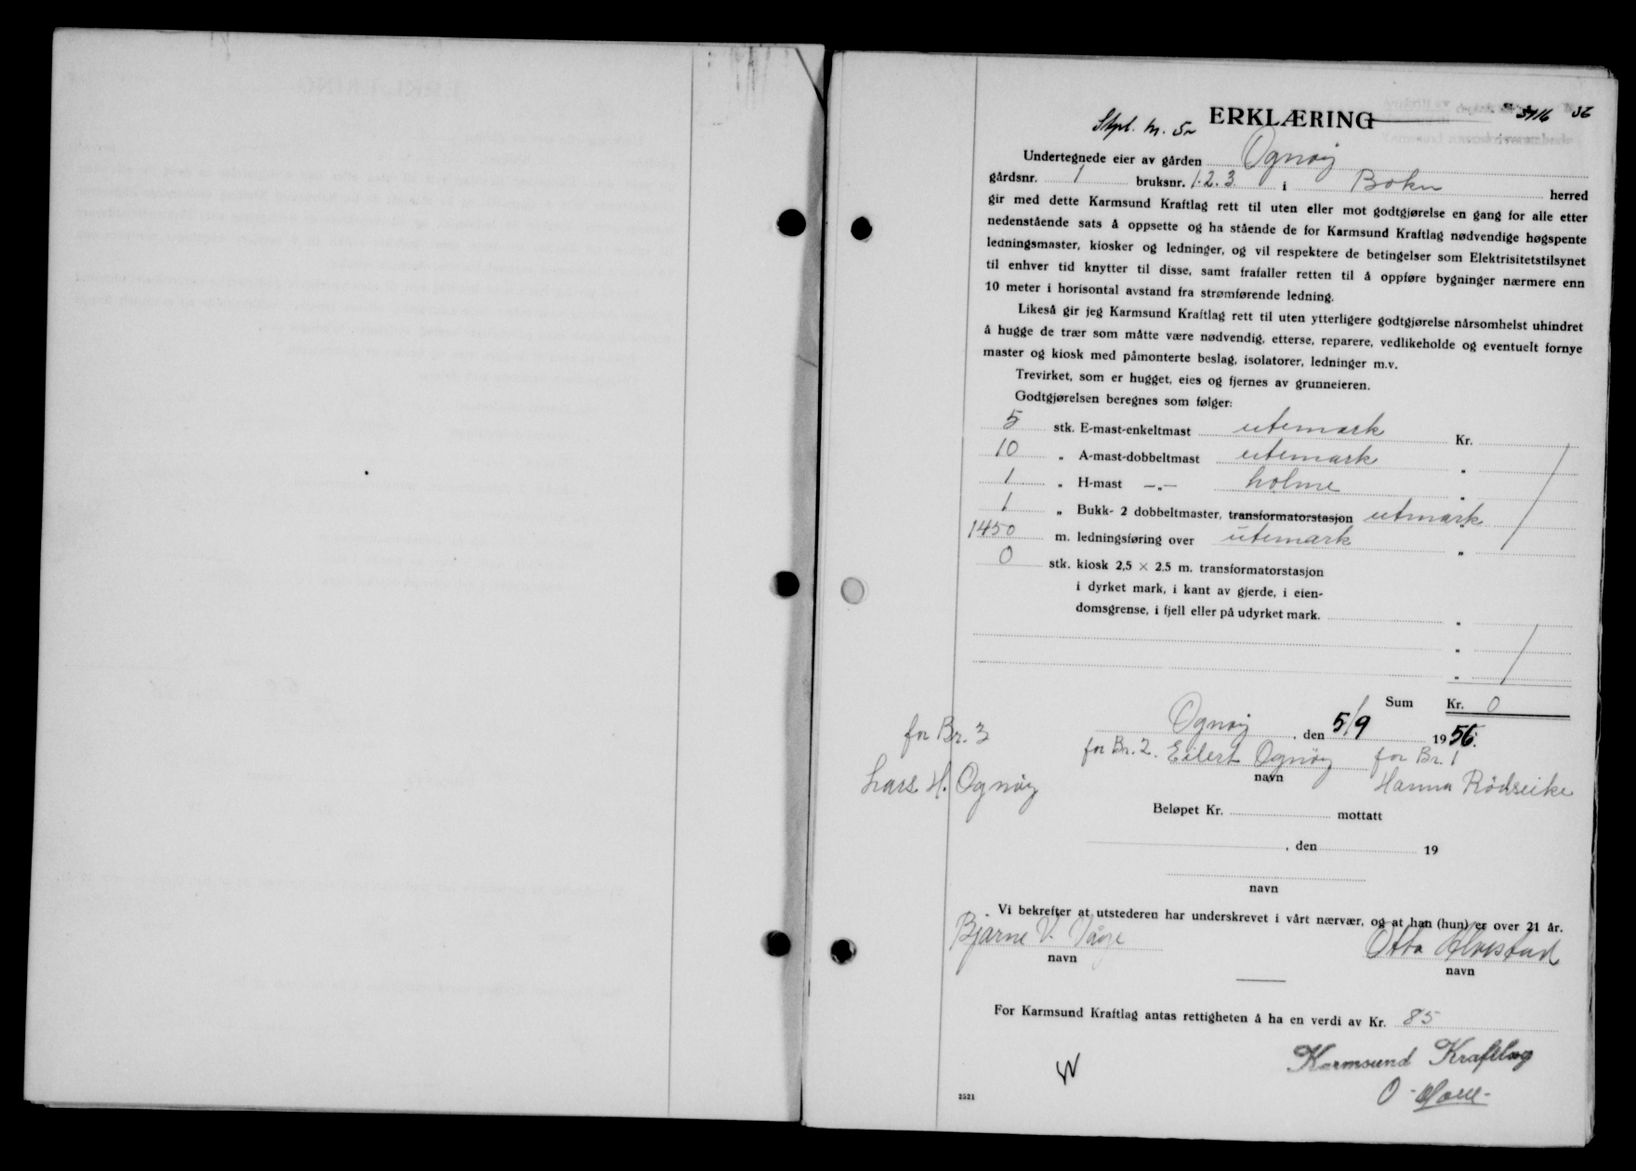 Stpl. m. 5-
ERKLÆRING
3716 56
Undertegnede eier av gården Ognøy
gårdsnr. 1 bruksnr. 1.2.3. i Bokn herred
gir med dette Karmsund Kraftlag rett til uten eller mot godtgjørelse en gang for alle etter
nedenstående sats å oppsette og ha stående de for Karmsund Kraftlag nødvendige høgspente
ledningsmaster, kiosker og ledninger, og vil respektere de betingelser som Elektrisitetstilsynet
til enhver tid knytter til disse, samt frafaller retten til å oppføre bygninger nærmere enn
10 meter i horisontal avstand fra strømførende ledning.
Likeså gir jeg Karmsund Kraftlag rett til uten ytterligere godtgjørelse nårsomhelst uhindret
å hugge de trær som måtte være nødvendig, etterse, reparere, vedlikeholde og eventuelt fornye
master og kiosk med påmonterte beslag, isolatorer, ledninger m.v.
Trevirket, som er hugget, eies og fjernes av grunneieren.
Godtgjørelsen beregnes som følger:
5 stk. E-mast-enkeltmast utemark Kr.
10 „ A-mast-dobbeltmast utemark „
1 „ H-mast —„— holme „
1 „ Bukk- 2 dobbeltmaster, transformatorstasjon utmark „
1450 m. ledningsføring over utemark „
0 stk. kiosk 2,5 × 2,5 m. transformatorstasjon
i dyrket mark, i kant av gjerde, i eien-
domsgrense, i fjell eller på udyrket mark. „
„
„
Sum Kr. 0
Ognøy, den 5/9 1956.
for Br. 3 for Br. 2. Eilert Ognøy for Br. 1
navn
Lars H. Ognøy Hanna Rødseike
Beløpet Kr. mottatt
, den 19
navn
Vi bekrefter at utstederen har underskrevet i vårt nærvær, og at han (hun) er over 21 år.
Bjarne V. Våge Otto Alvestad
navn navn
For Karmsund Kraftlag antas rettigheten å ha en verdi av Kr. 85
Karmsund Kraftlag
2521